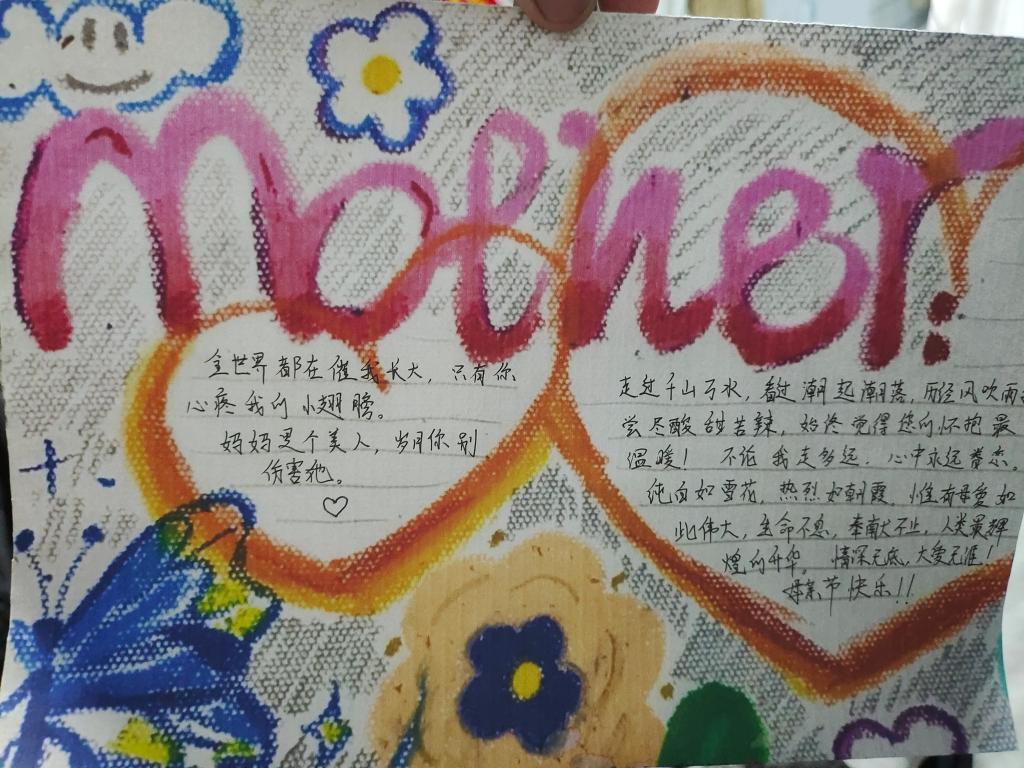 Mother
全世界都在催我长大，只有你
心疼我的小翅膀。
妈妈是个美人，岁月你别
伤害她。
走过千山万水，看过潮起潮落，历经风吹雨
尝尽酸甜苦辣，始终觉得您的怀抱最
温暖！不论我走多远，心中永远眷恋。
纯白如雪花，热烈如朝霞，惟有母爱如
此伟大，生命不息，奉献不止，人类最辉
煌的升华，情深无底，大爱无涯！
母亲节快乐！！